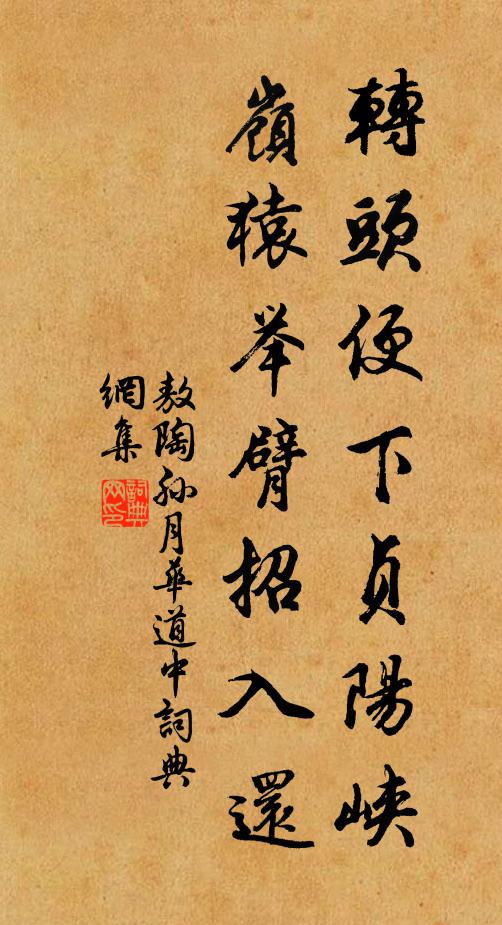 轉頭便下貞陽峽
嶺猿举臂招入還
敖陶孫月華道中詞典
網集
詞典
网印